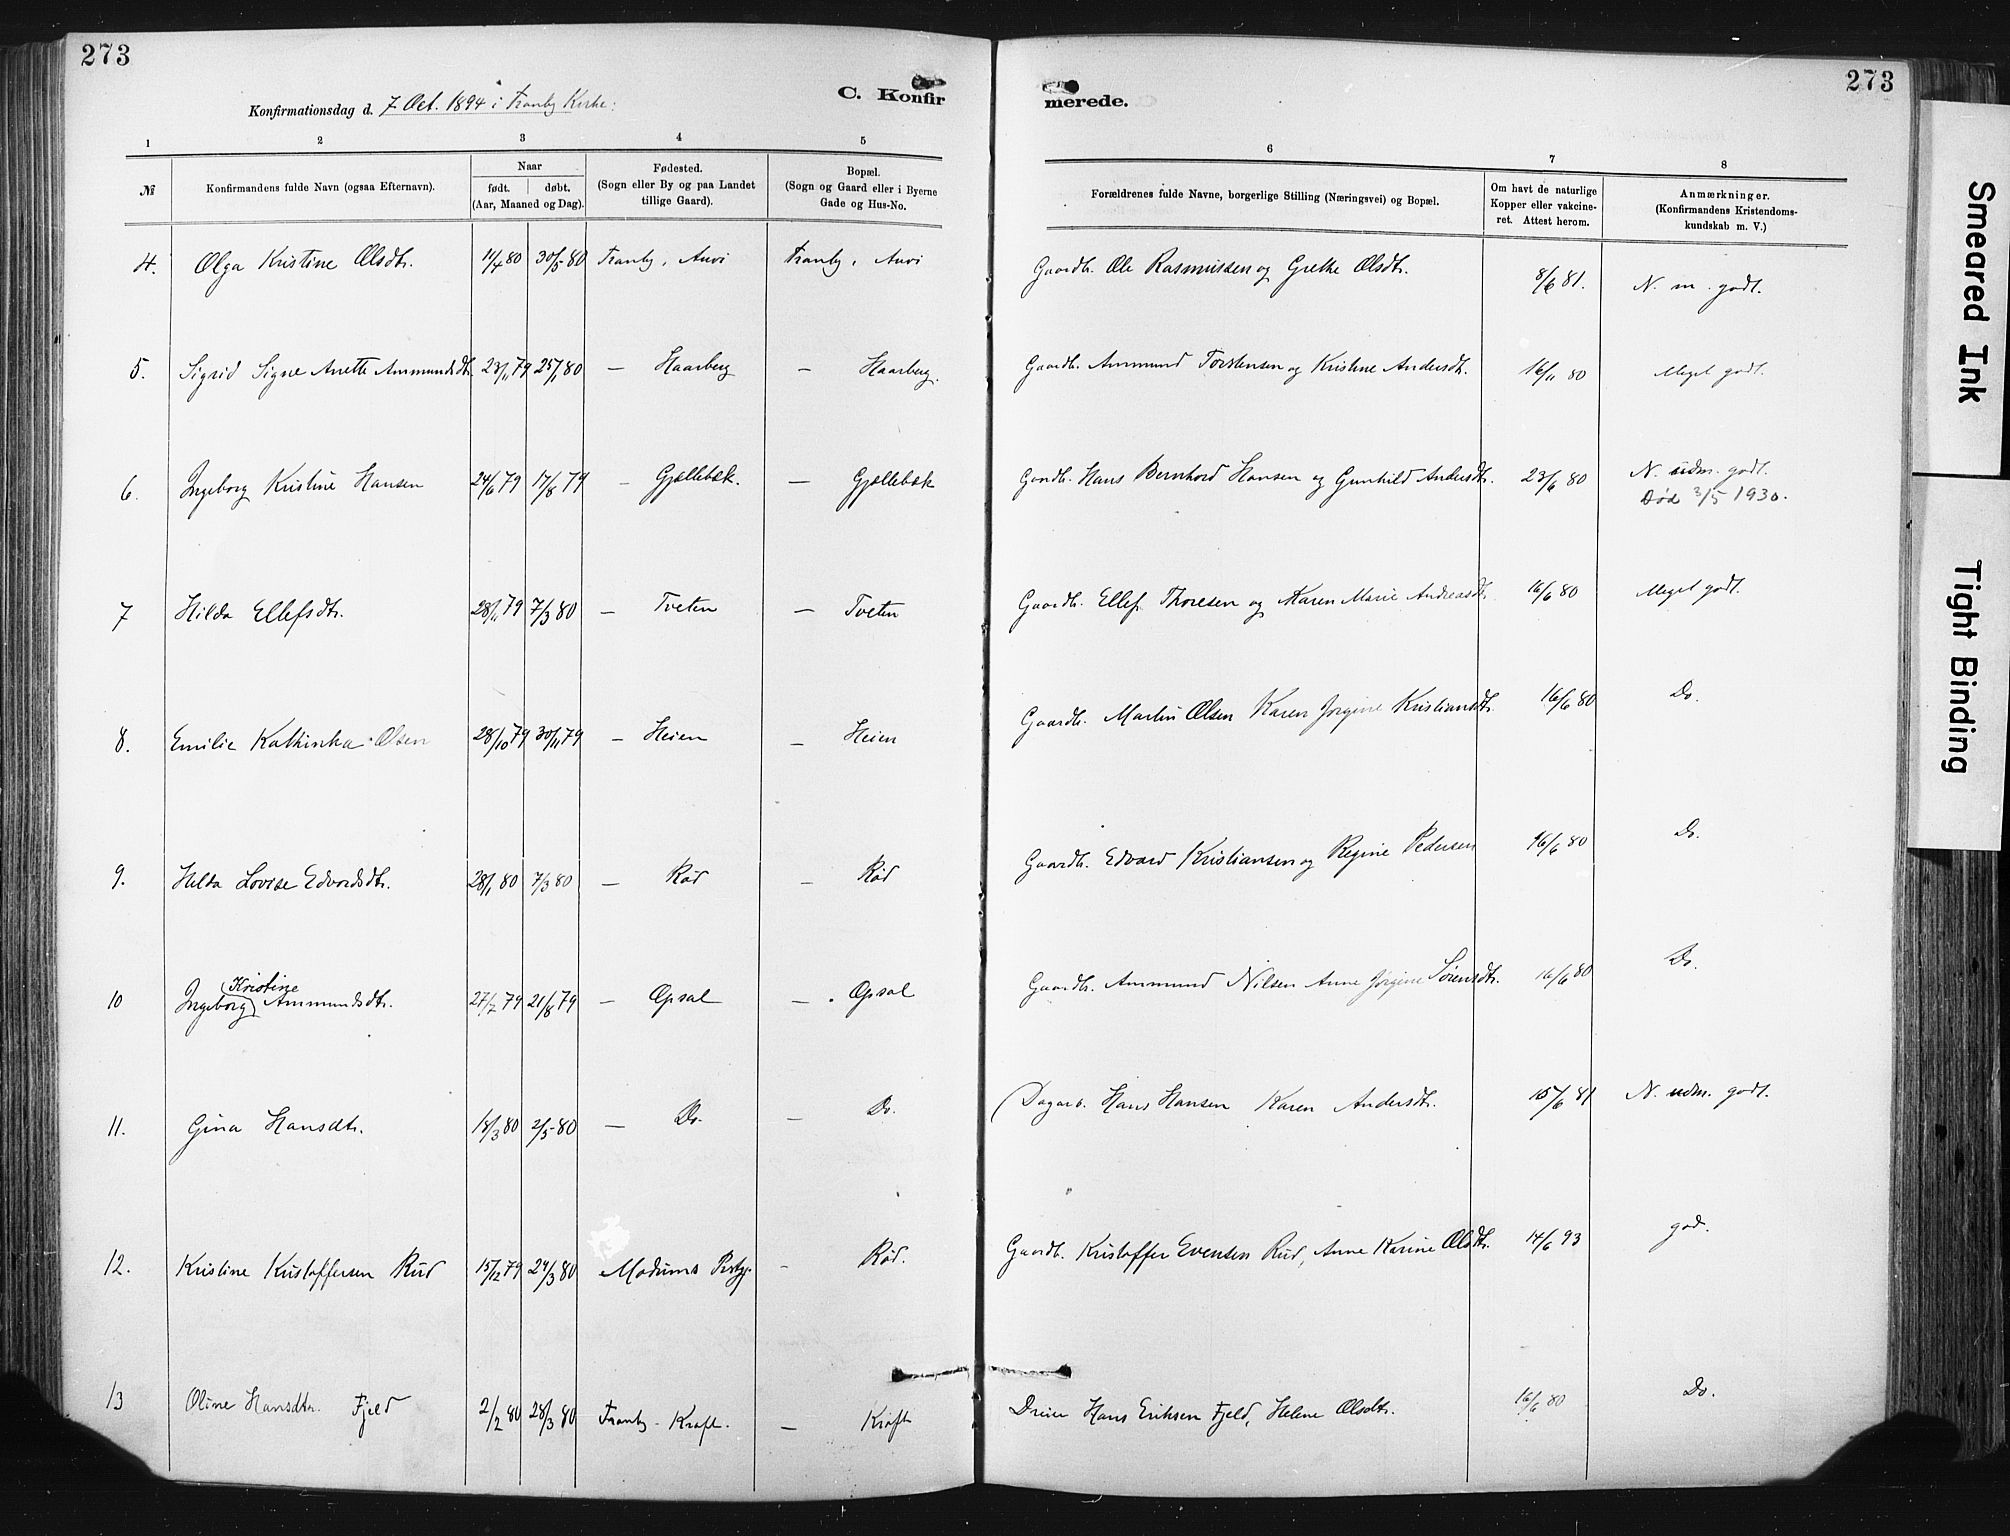 273
273
Konfirmationsdag d. 7 Oct. 1894 i Tranby Kirke:
C. Konfir
merede.
1 2 3 4 5 6 7 8
№
Konfirmandens fulde Navn (ogsaa Efternavn).
Naar
født. døbt.
(Aar, Maaned og Dag).
Fødested.
(Sogn eller By og paa Landet
tillige Gaard).
Bopæl.
(Sogn og Gaard eller i Byerne
Gade og Hus-No.
Forældrenes fulde Navne, borgerlige Stilling (Næringsvei) og Bopæl.
Om havt de naturlige
Kopper eller vakcine-
ret. Attest herom.
Anmærkninger.
(Konfirmandens Kristendoms-
kundskab m. V.)
4. Olga Kristine Olsdtr. 11/4 80 30/5 80 Tranby, Auvi Tranby, Auvi Gaardb. Ole Rasmussen og Grethe Olsdtr. 8/6 81. N. m. godt.
5. Sigrid Signe Anette Ammundsdtr. 23/11 79 25/1 80 — Haarberg — Haarberg. Gaardb. Ammund Torstensen og Kristine Andersdtr. 16/11 80 Meget godt.
6. Ingeborg Kristine Hansen 24/6 79 17/8 79 — Gjellebæk. — Gjellebæk Gaardb. Hans Bernhard Hansen og Gunhild Andersdtr. 23/6 80 N. udm. godt.
Død 3/5 1930.
7 Hilda Ellefsdtr. 28/11 79 7/3 80 — Tveten — Tveten Gaardb. Ellef Thoresen og Karen Marie Andreasdtr 16/6 80 Meget godt.
8. Emilie Kathinka Olsen 28/10 79 30/11 79 — Heien — Heien Gaardb. Martin Olsen Karen Jørgine Kristiansdtr. 16/6 80 Do.
9. Helda Lovise Edvardsdtr. 28/1 80 7/3 80 — Rød — Rød Gaardb. Edvard Kristiansen og Regine Pedersen 16/6 80 Do.
10 Ingeborg Kristine Ammundsdtr. 27/7 79 21/8 79 — Opsal — Opsal Gaardb. Ammund Nilsen Anne Jørgine Sørensdtr. 16/6 80 Do.
11. Gina Hansdtr. 18/3 80 2/5 80 — Do. — Do. Dagarb. Hans Hansen Karen Andersdtr. 15/6 81 N. udm. godt.
12. Kristine Kristoffersen Rud 15/12 79 29/3 80 Modums Prstgj. — Rød. Gaardb. Kristoffer Evensen Rud, Anne Karine Olsdtr. 14/6 93 god.
13 Oline Hansdtr. Fjeld 2/2 80 28/3 80 Tranby - Kraft. — Kraft Dreier Hans Eriksen Fjeld, Helene Olsdtr. 16/6 80 Do.
Smeared Ink
Tight Binding